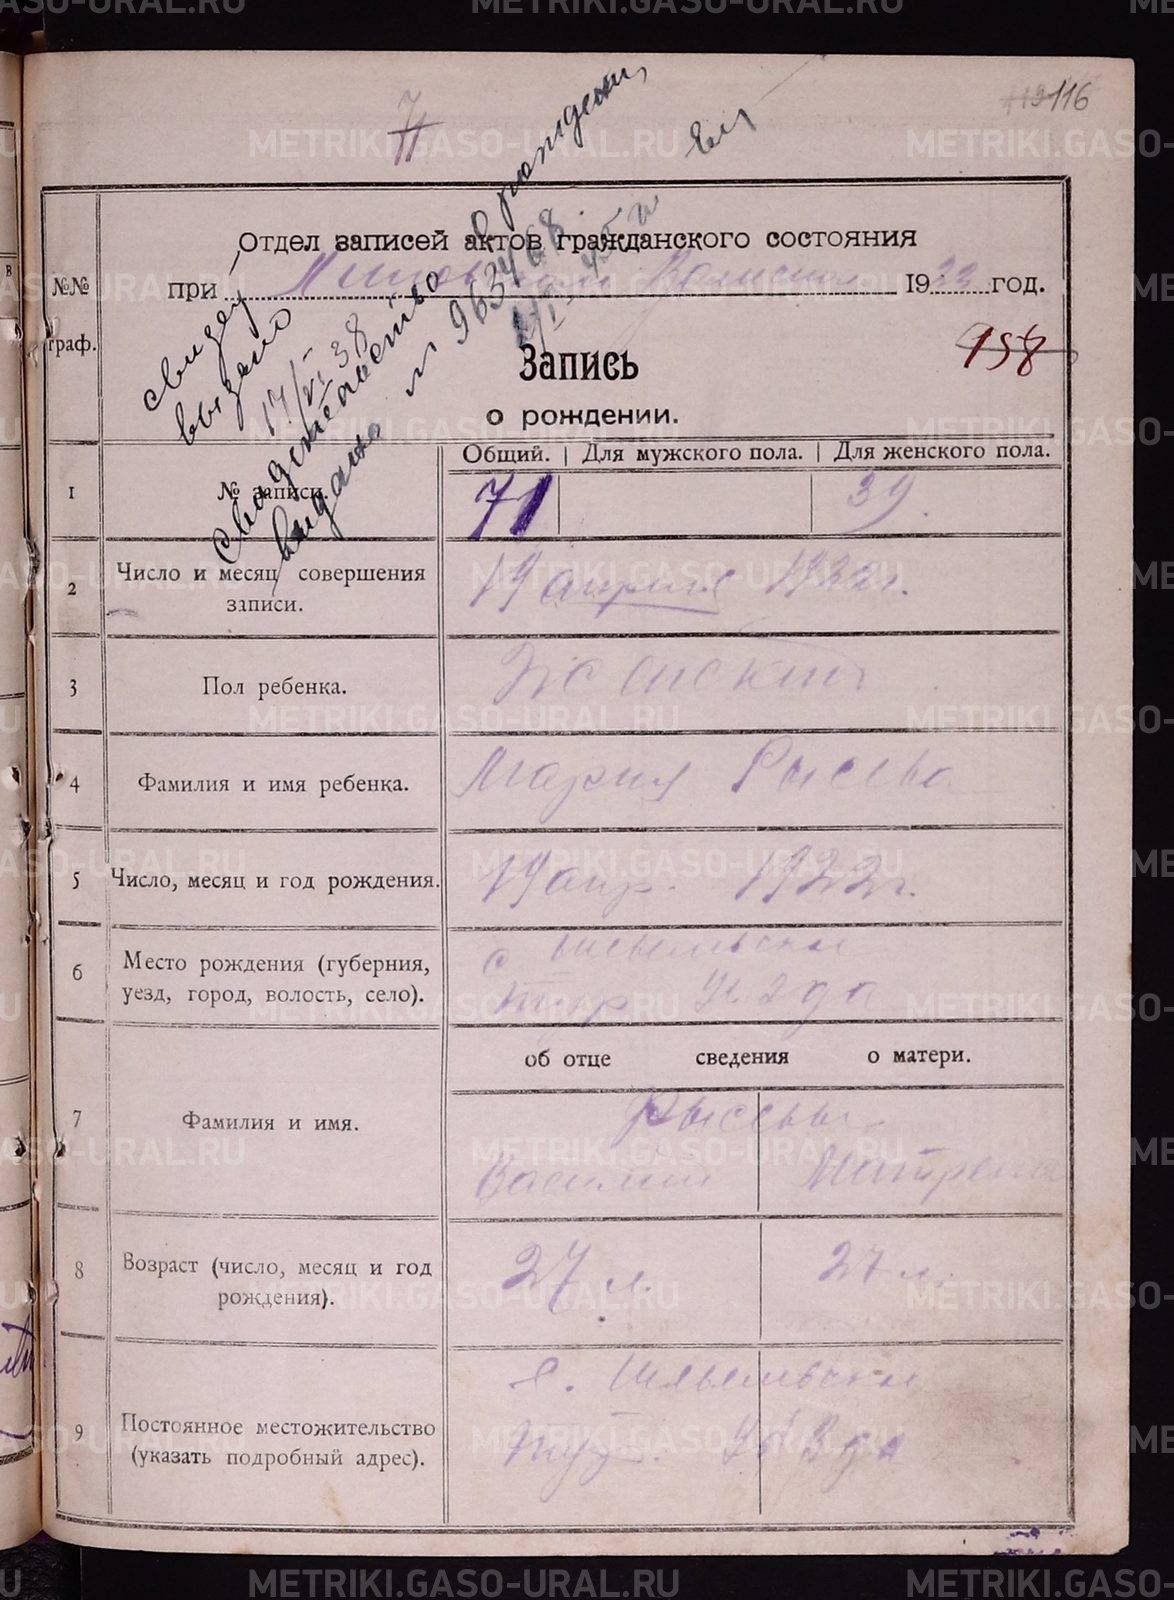 116
71
Отдел записей актов гражданского состояния
при 1922 год.
№№ граф.
158
Запись
о рождении.
свидет
выдано
17/VI 38
Свидетельство о рождении
выдано № 963468
Общий. | Для мужского пола. | Для женского пола.
1 № записи. 71 39.
2 Число и месяц совершения записи. 19 апреля 1922 г.
3 Пол ребенка. Женский
4 Фамилия и имя ребенка. Мария Рысева
5 Число, месяц и год рождения. 19 апр. 1922 г.
6 Место рождения (губерния, уезд, город, волость, село). с Тур. уезда
об отце сведения о матери.
7 Фамилия и имя. Рысевы
Василий Матрена
8 Возраст (число, месяц и год рождения). 27 л. 27 л.
9 Постоянное местожительство (указать подробный адрес). с. Тур. уезда
METRIKI.GASO-URAL.RU